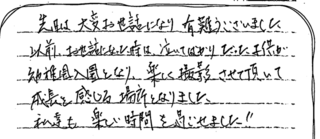 先日は大変お世話になり有難うございました
以前、お世話になった時は、泣いてばかりだった子供が
幼稚園入園となり、楽しく撮影させて頂いて
成長を感じる場所となりました。
私達も楽しい時間を過ごせました!!